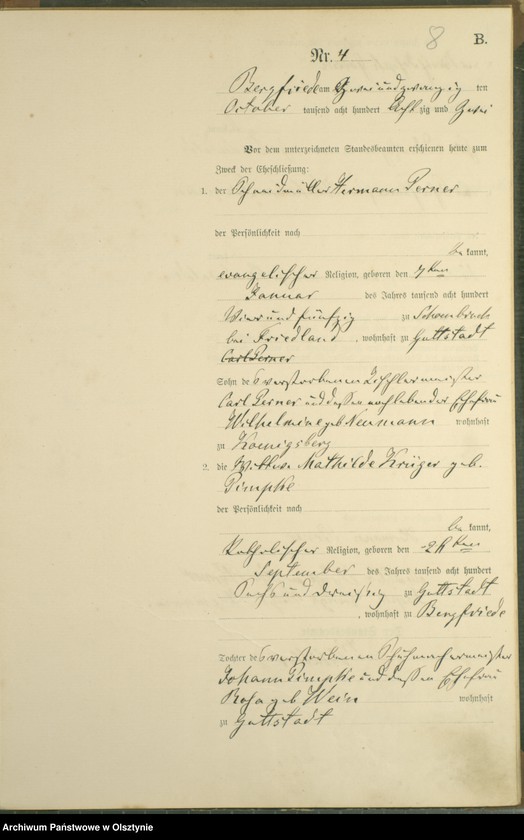 8 B.
Nr. 4
Bergfriede am Zweiundzwanzig ten
October tausend acht hundert Achtzig und Zwei
Vor dem unterzeichneten Standesbeamten erschienen heute zum
Zweck der Eheschließung:
1. der Schneidmüller Hermann Perner
der Persönlichkeit nach
be kannt,
evangelischer Religion, geboren den 7 ten
Januar des Jahres tausend acht hundert
Vier und fünfzig zu Schönbruch
bei Friedland, wohnhaft zu Guttstadt
Carl Perner
Sohn des verstorbenen Tischlermeister
Carl Perner und dessen nachlebender Ehefrau
Wilhelmine geb Neumann wohnhaft
zu Koenigsberg
2. die Wittwe Mathilde Krüger geb.
Pimpke
der Persönlichkeit nach
be kannt,
katholischer Religion, geboren den ten
September des Jahres tausend acht hundert
Sechs und dreissig zu Guttstadt
, wohnhaft zu Bergfriede
Tochter des verstorbenen Schuhmachermeister
Johann Pimpke und dessen Ehefrau
Rosa geb Wein wohnhaft
zu Guttstadt
Archiwum Państwowe w Olsztynie